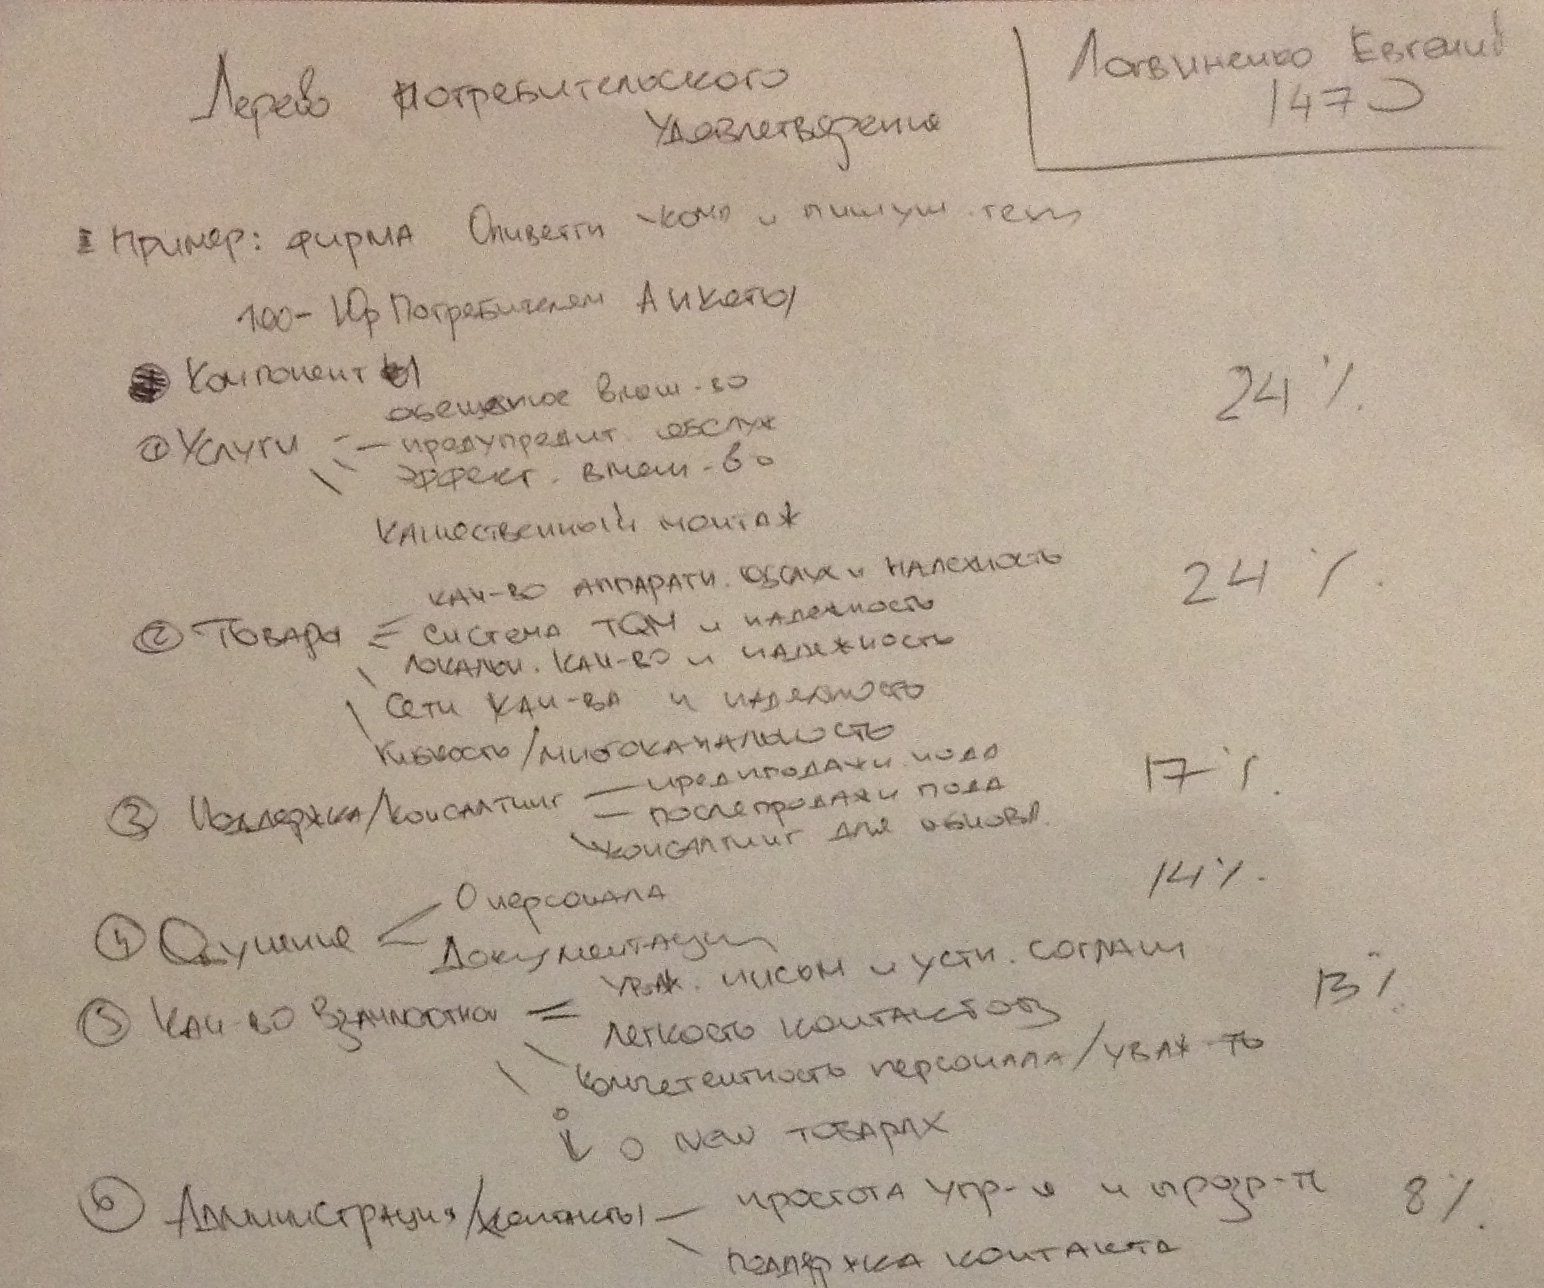 Дерево потребительского
удовлетворения
Логвиненко Евгений
147
Пример: фирма Оливетти комп и пишущ. техн
100- Юр Потребителям Анкеты
Компоненты
① Услуги обещанное вмеш-во 24%.
предупредит. обслуж
эффект. вмеш-во
качественный монтаж
② Товары кач-во аппаратн. обслуж и надежность 24%.
система TQM и надежность
локальн. кач-во и надежность
сети кач-ва и надежность
гибкость/многоканальность
③ Поддержка/консалтинг предпродажн. подд 17%.
послепродажн подд
консалтинг для обновл.
④ Обучение О персонала 14%.
Документации
⑤ Кач-во взаимоотнош уваж. письм и устн. соглаш 13%.
легкость контактов
компетентность персонала/уваж-ть
i о new товарах
⑥ Администрация/контакты простота упр-я и прозр-ть 8%.
поддержка контакта